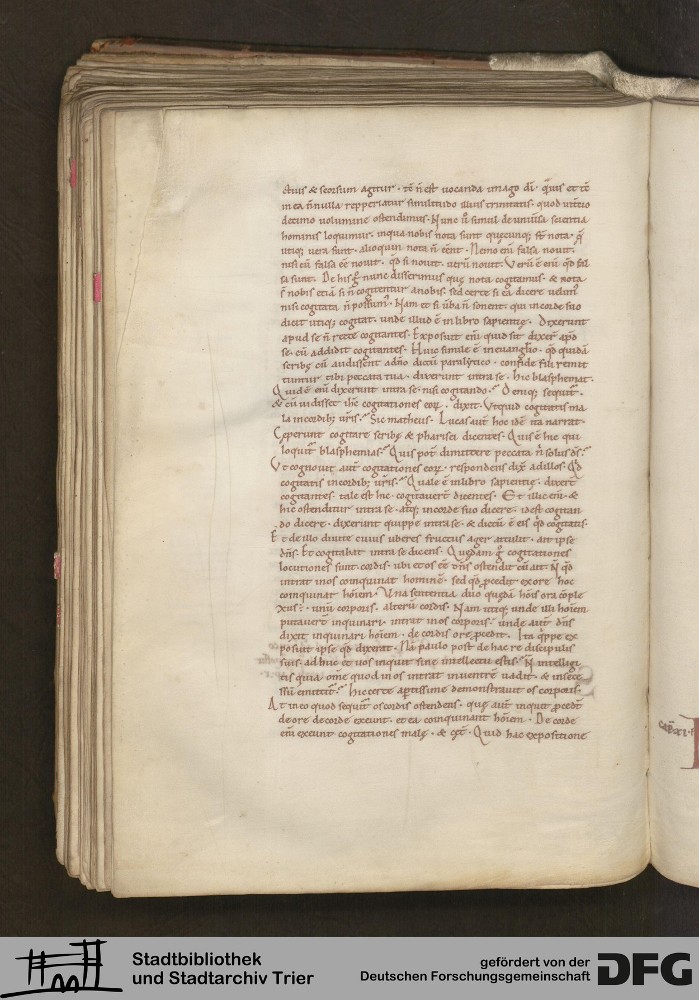 ctius & seorsum agitur · tē n̄ est vocanda imago dī · q̄uis et tē
in ea n̄nulla repperiatur similitudo illius trinitatis · quod tertio
decimo volumine ostendimus · Nunc ḡ simul de universa scientia
hominis loquimur · in qua nobis nota sunt quęcunq; st̄ nota · q̄
utiq; vera sunt · alioquin nota n̄ eēnt · Nemo eni falsa novit ·
nisi cū falsa eē novit · qd si novit · verū novit · Verū ē enī qd fal
sa sunt · De his ḡ nunc disserimus quę nota cogitamus · & nota
st̄ nobis etiā si n̄ cogitentur a nobis · sed certe si ea dicere velim'
nisi cogitata n̄ possum' · Nam et si ūba n̄ sonent · qui in corde suo
dicit utiq; cogitat · unde illud ē in libro sapientię · Dixerunt
apud se n̄ recte cogitantes · Exposuit enī quid sit dixer̄ apd
se · cū addidit cogitantes · Huic simile ē in evanglio · qd quidā
scribę cū audissent a dno dictū paralytico · confide fili remit
tuntur tibi peccata tua · dixerunt intra se · hic blasphemat ·
Quid ē enī dixerunt intra se · nisi cogitando · Deniq; sequit̄ ·
& cū vidisset ihc cogitationes eoꝝ · dixit · Ut quid cogitatis ma
la in cordib; vr̄is · Sic matheus · Lucas aut̄ hoc idē ita narrat ·
Ceperunt cogitare scribę & pharisei dicentes · Quis ē hic qui
loquit̄ blasphemias · Quis pot̄ dimittere peccata n̄ solus ds̄ ·
Ut cognovit aut̄ cogitationes eoꝝ · respondens dix̄ ad illos · Qd
cogitatis in cordib; vr̄is · Quale ē in libro sapientię · dixer̄t
cogitantes · tale est hic · cogitaver̄t dicentes · Et illic enī · &
hic ostenditur intra se · atq; in corde suo dicere · id est cogitan
do dicere · dixerunt quippe intra se · & dictū ē eis qd cogitatis ·
Et de illo divite cuius uberes fructus ager attulit · ait ipse
dn̄s · Et cogitabat intra se dicens · Quędam ḡ cogitationes
locutiones sunt cordis · ubi et os eē dn̄s ostendit cū ait · N̄ qd
intrat in os coinquinat hominē · sed qd p̄cedit ex ore hoc
coinquinat hōiem · Una sententia duo quędā hōis ora cōple
xus ē · unū corporis · alterū cordis · Nam utiq; unde illi hōiem
putaverē inquinari · intrat in os corporis · unde aut̄ dn̄s
dixit inquinari hōiem · de cordis ore p̄cedit · Ita q̄ppe ex
posuit ipse qd dixerat · Nā paulo post de hac re discipulis
suis · adhuc et vos inquit sine intellectu estis · N̄ intelligi
tis quia ōme quod in os intrat in ventrē vadit · & in sece
ssū emittit̄ · Hic certe ap̄tissime demonstravit os corporis ·
At in eo quod sequit̄ os cordis ostendens · quę aut̄ inquit p̄cedt̄
de ore de corde exeunt · et ea coinquinant hōiem · De corde
enī exeunt cogitationes malę · & cęt̄ · Quid hac expositione
Stadtbibliothek
und Stadtarchiv Trier
gefördert von der
Deutschen Forschungsgemeinschaft
DFG